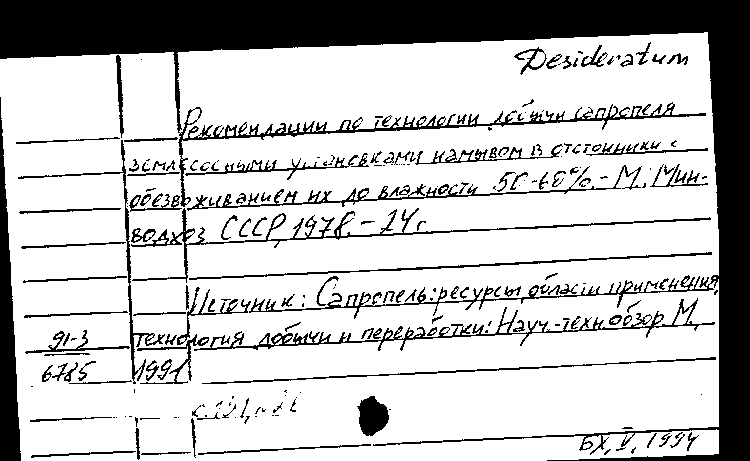 Desideratum
Рекомендации по технологии добычи сапропеля
землесосными установками намывом в отстойники с
обезвоживанием их до влажности 50-60%. - М.: Мин-
водхоз СССР, 1978. - 24 с
Источник: Сапропель: ресурсы, области применения,
91-3 технология добычи и переработки: Науч.-техн. обзор. М.,
6785 1991
БХ, V, 1994